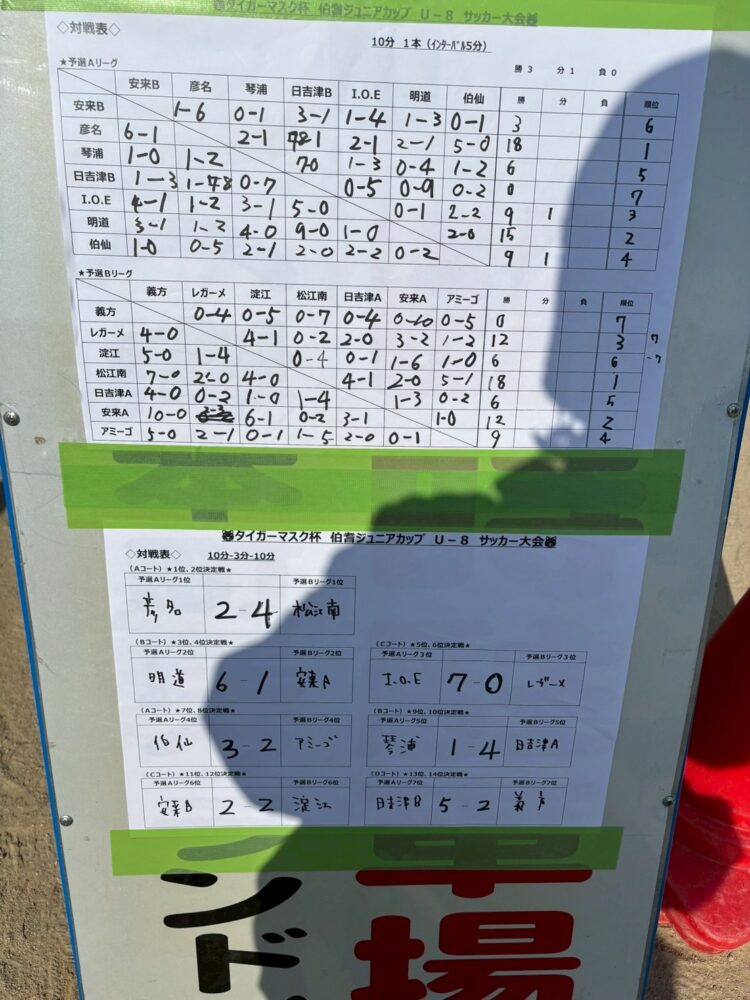 タイガーマスク杯 伯耆ジュニアカップ U－8 サッカー大会
◇対戦表◇ 10分 1本（ｲﾝﾀｰﾊﾞﾙ5分）
★予選Aリーグ 勝3 分1 負0
安来B 彦名 琴浦 日吉津B I.O.E 明道 伯仙 勝 分 負 順位
安来B 1-6 0-1 3-1 1-4 1-3 0-1 3 6
彦名 6-1 2-1 2-1 2-1 5-0 18 1
琴浦 1-0 1-2 7-0 1-3 0-4 1-2 6 5
日吉津B 1-3 0-7 0-5 0-9 0-2 0 7
I.O.E 4-1 1-2 3-1 5-0 0-1 2-2 9 1 3
明道 3-1 1-2 4-0 9-0 1-0 2-0 15 2
伯仙 1-0 0-5 2-1 2-0 2-2 0-2 9 1 4
★予選Bリーグ
義方 レガーメ 淀江 松江南 日吉津A 安来A アミーゴ 勝 分 負 順位
義方 0-4 0-5 0-7 0-4 0-10 0-5 0 7
レガーメ 4-0 4-1 0-2 2-0 3-2 1-2 12 3
淀江 5-0 1-4 0-4 0-1 1-6 1-0 6 6
松江南 7-0 2-0 4-0 4-1 2-0 5-1 18 1
日吉津A 4-0 0-2 1-0 1-4 1-3 0-2 6 5
安来A 10-0 6-1 0-2 3-1 1-0 12 2
アミーゴ 5-0 2-1 0-1 1-5 2-0 0-1 9 4
タイガーマスク杯 伯耆ジュニアカップ U－8 サッカー大会
◇対戦表◇ 10分-3分-10分
（Aコート）★1位、2位決定戦★
予選Aリーグ1位 予選Bリーグ1位
彦名 2-4 松江南
（Bコート）★3位、4位決定戦★
予選Aリーグ2位 予選Bリーグ2位
明道 6-1 安来A
（Cコート）★5位、6位決定戦★
予選Aリーグ3位 予選Bリーグ3位
I.O.E 7-0 レガーメ
（Aコート）★7位、8位決定戦★
予選Aリーグ4位 予選Bリーグ4位
伯仙 3-2 アミーゴ
（Bコート）★9位、10位決定戦★
予選Aリーグ5位 予選Bリーグ5位
琴浦 1-4 日吉津A
（Cコート）★11位、12位決定戦★
予選Aリーグ6位 予選Bリーグ6位
安来B 2-2 淀江
（Dコート）★13位、14位決定戦★
予選Aリーグ7位 予選Bリーグ7位
日吉津B 5-2 義方
ンド
車場